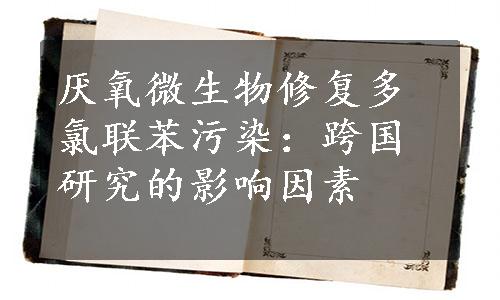 厌氧微生物修复多
氯联苯污染：跨国
研究的影响因素